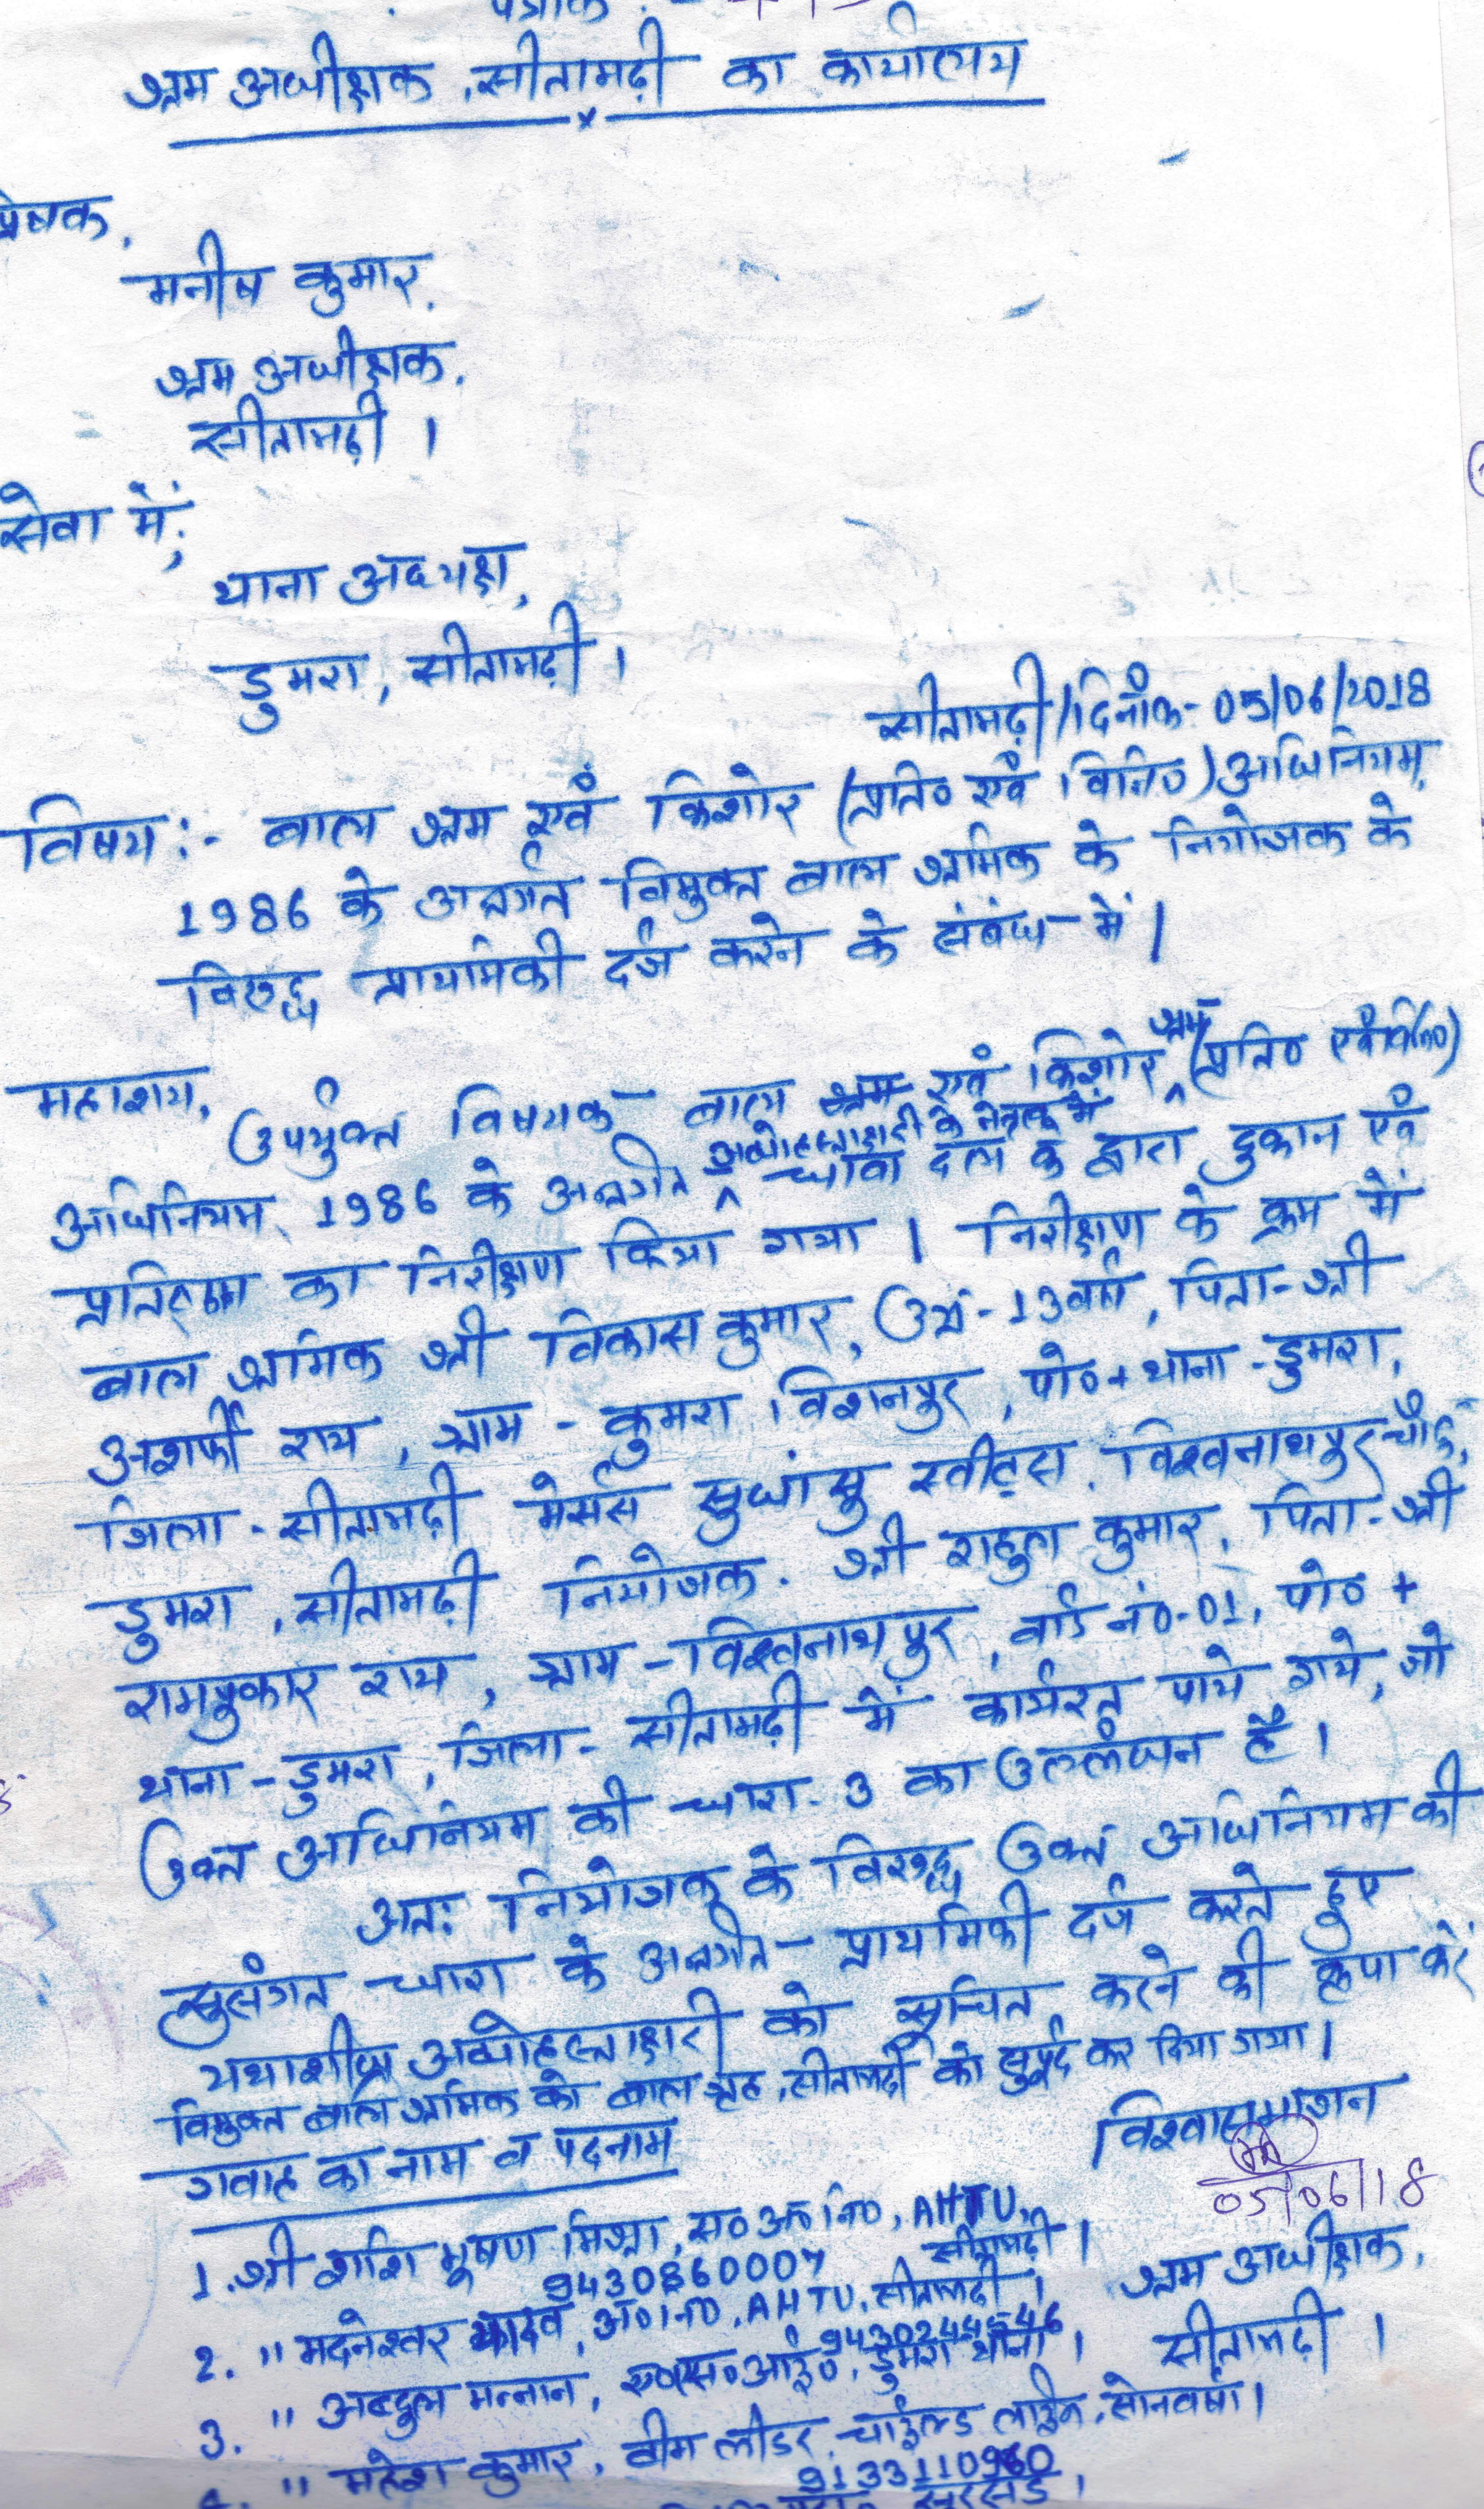 पत्रांक :-
श्रम अधीक्षक, सीतामढ़ी का कार्यालय
x
प्रेषक,
मनीष कुमार,
श्रम अधीक्षक,
सीतामढ़ी ।
सेवा में,
थाना अध्यक्ष,
डुमरा, सीतामढ़ी ।
सीतामढ़ी/दिनाँक- 05/06/2018
विषय :- बाल श्रम एवं किशोर (प्रति० एवं विनि०) अधिनियम,
1986 के अन्तर्गत विमुक्त बाल श्रमिक के नियोजक के
विरुद्ध प्राथमिकी दर्ज करने के संबंध में ।
महाशय,
उपर्युक्त विषयक बाल श्रम एवं किशोर श्रम (प्रति० एवं विनि०)
अधिनियम, 1986 के अन्तर्गत अधोहस्ताक्षरी के नेतृत्व में धावा दल के द्वारा दुकान एवं
प्रतिष्ठान का निरीक्षण किया गया । निरीक्षण के क्रम में
बाल श्रमिक श्री विकास कुमार, उम्र- 13 वर्ष, पिता- श्री
अशर्फी राय, ग्राम - कुमरा विशनपुर, पो० + थाना - डुमरा,
जिला - सीतामढ़ी मेसर्स सुधांसु स्वीट्स, विश्वनाथपुर चौक,
डुमरा, सीतामढ़ी नियोजक- श्री राहुल कुमार, पिता- श्री
रामपुकार राय, ग्राम - विश्वनाथपुर, वार्ड नं०-01, पो० +
थाना - डुमरा, जिला - सीतामढ़ी में कार्यरत पाये गये, जो
उक्त अधिनियम की धारा- 3 का उल्लंघन है ।
अतः नियोजक के विरुद्ध उक्त अधिनियम की
सुसंगत धारा के अन्तर्गत प्राथमिकी दर्ज करते हुए
यथाशीघ्र अधोहस्ताक्षरी को सूचित करने की कृपा करें
विमुक्त बाल श्रमिक को बाल गृह, सीतामढ़ी को सुपुर्द कर दिया गया ।
विश्वासभाजन
05/06/18
श्रम अधीक्षक,
सीतामढ़ी ।
गवाह का नाम व पदनाम
1. श्री शशि भूषण मिश्रा, स० अ० नि०, AHTU, सीतामढ़ी ।
9430860007
2. " मदनेश्वर यादव, अ० नि०, AHTU, सीतामढ़ी ।
3. " अब्दुल मन्नान, ए० एस० आई०, डुमरा थाना ।
4. " महेश कुमार, टीम लीडर, चाईल्ड लाईन, सोनवर्षा ।
सुरसंड ।